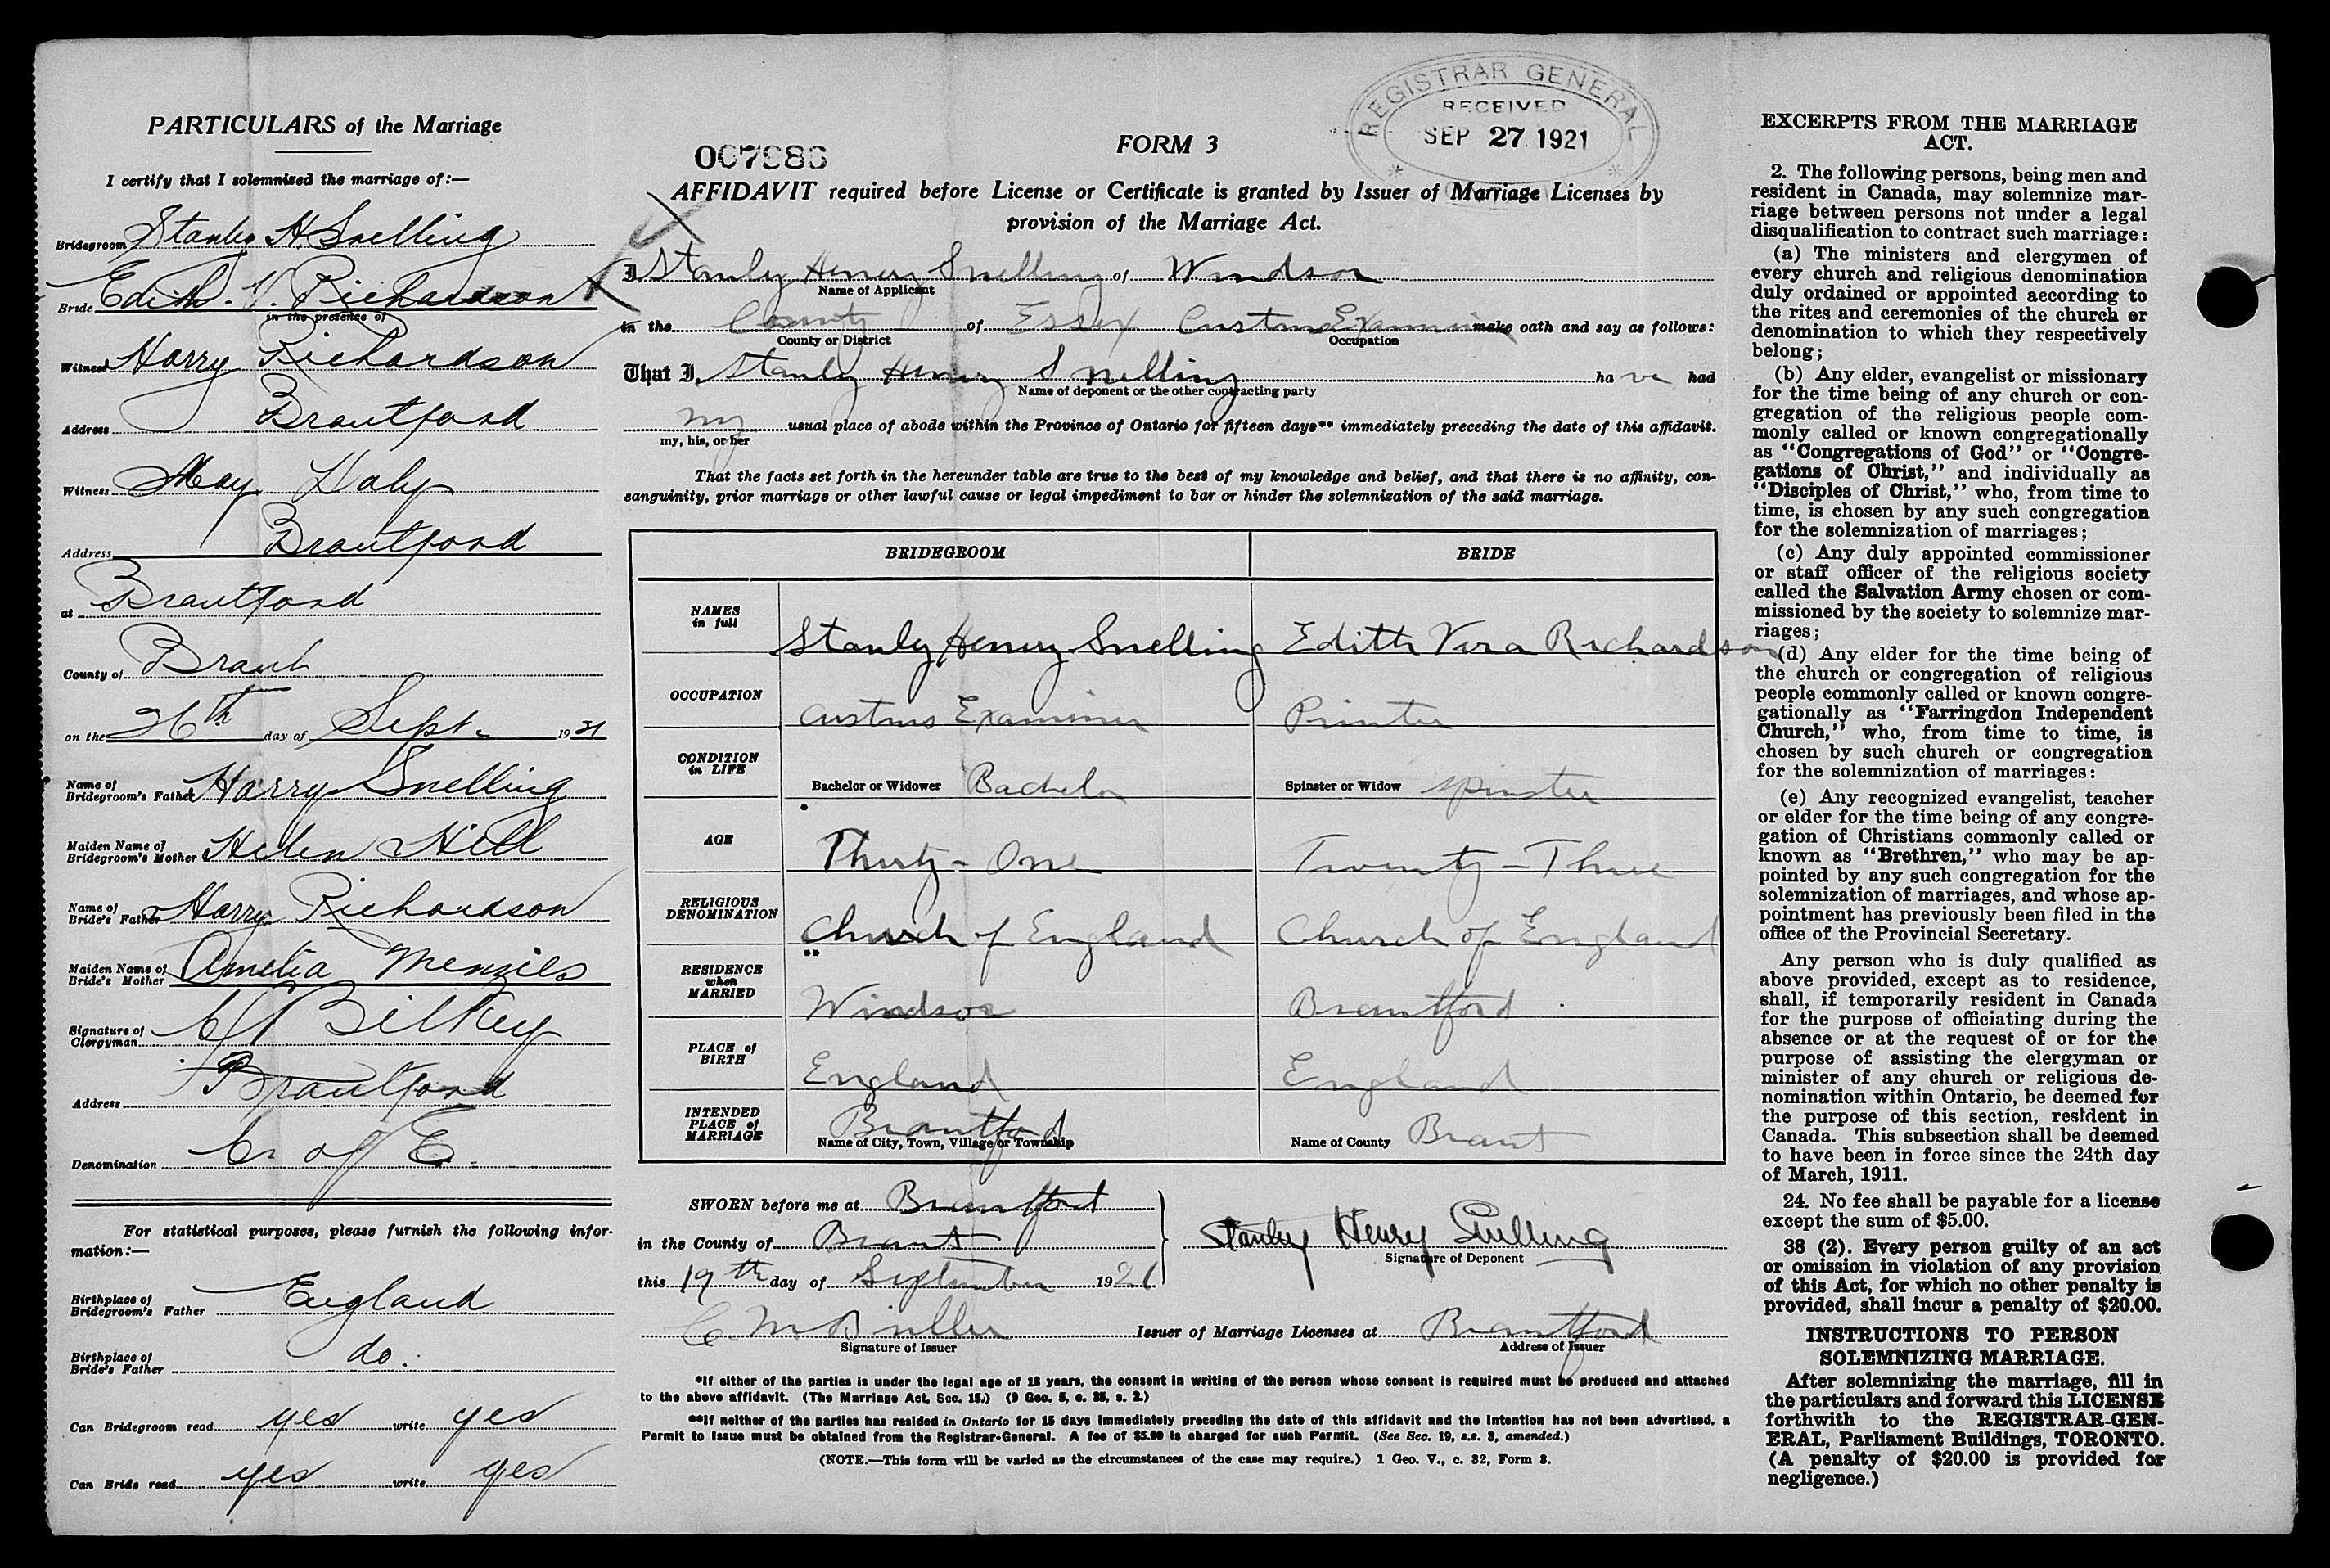 PARTICULARS of the Marriage
I certify that I solemnized the marriage of:—
Bridegroom Stanley H. Snelling
Bride Edith. V. Richardson
in the presence of
Witness Harry Richardson
Address Brantford
Witness May Haly
Address Brantford
at Brantford
County of Brant
on the 26th day of Sept. 1921
Name of Bridegroom's Father Harry Snelling
Maiden Name of Bridegroom's Mother Helen Hill
Name of Bride's Father Harry Richardson
Maiden Name of Bride's Mother Amelia Menzies
Signature of Clergyman Bilkey
Address Brantford
Denomination C. of E.
For statistical purposes, please furnish the following infor-
mation:—
Birthplace of Bridegroom's Father England
Birthplace of Bride's Father do.
Can Bridegroom read yes write yes
Can Bride read yes write yes
FORM 3
REGISTRAR GENERAL
RECEIVED
SEP 27 1921
AFFIDAVIT required before License or Certificate is granted by Issuer of Marriage Licenses by
provision of the Marriage Act.
I, Stanley Henry Snelling of Windsor
Name of Applicant
in the County of Essex Customs Examiner make oath and say as follows:
County or District Occupation
That I, Stanley Henry Snelling have had
Name of deponent or the other contracting party
my usual place of abode within the Province of Ontario for fifteen days** immediately preceding the date of this affidavit.
my, his, or her
That the facts set forth in the hereunder table are true to the best of my knowledge and belief, and that there is no affinity, con-
sanguinity, prior marriage or other lawful cause or legal impediment to bar or hinder the solemnization of the said marriage.
BRIDEGROOM BRIDE
NAMES in full Stanley Henry Snelling Edith Vera Richardson
OCCUPATION Customs Examiner Printer
CONDITION in LIFE Bachelor or Widower Bachelor Spinster or Widow Spinster
*
AGE Thirty-One Twenty-Three
RELIGIOUS DENOMINATION Church of England Church of England
**
RESIDENCE when MARRIED Windsor Brantford
PLACE of BIRTH England England
INTENDED PLACE of MARRIAGE Brantford Name of City, Town, Village or Township Name of County Brant
SWORN before me at Brantford
in the County of Brant
this 19th day of September 1921
Stanley Henry Snelling
Signature of Deponent
C. M. Issuer of Marriage Licenses at Brantford
Signature of Issuer Address of Issuer
*If either of the parties is under the legal age of 18 years, the consent in writing of the person whose consent is required must be produced and attached
to the above affidavit. (The Marriage Act, Sec. 15.) (9 Geo. 5, c. 35, s. 2.)
**If neither of the parties has resided in Ontario for 15 days immediately preceding the date of this affidavit and the intention has not been advertised, a
Permit to Issue must be obtained from the Registrar-General. A fee of $5.00 is charged for such Permit. (See Sec. 19, s.s. 3, amended.)
(NOTE.—This form will be varied as the circumstances of the case may require.) 1 Geo. V., c. 32, Form 3.
EXCERPTS FROM THE MARRIAGE
ACT.
2. The following persons, being men and
resident in Canada, may solemnize mar-
riage between persons not under a legal
disqualification to contract such marriage:
(a) The ministers and clergymen of
every church and religious denomination
duly ordained or appointed according to
the rites and ceremonies of the church or
denomination to which they respectively
belong;
(b) Any elder, evangelist or missionary
for the time being of any church or con-
gregation of the religious people com-
monly called or known congregationally
as "Congregations of God" or "Congre-
gations of Christ," and individually as
"Disciples of Christ," who, from time to
time, is chosen by any such congregation
for the solemnization of marriages;
(c) Any duly appointed commissioner
or staff officer of the religious society
called the Salvation Army chosen or com-
missioned by the society to solemnize mar-
riages;
(d) Any elder for the time being of
the church or congregation of religious
people commonly called or known congre-
gationally as "Farringdon Independent
Church," who, from time to time, is
chosen by such church or congregation
for the solemnization of marriages:
(e) Any recognized evangelist, teacher
or elder for the time being of any congre-
gation of Christians commonly called or
known as "Brethren," who may be ap-
pointed by any such congregation for the
solemnization of marriages, and whose ap-
pointment has previously been filed in the
office of the Provincial Secretary.
Any person who is duly qualified as
above provided, except as to residence,
shall, if temporarily resident in Canada
for the purpose of officiating during the
absence or at the request of or for the
purpose of assisting the clergyman or
minister of any church or religious de-
nomination within Ontario, be deemed for
the purpose of this section, resident in
Canada. This subsection shall be deemed
to have been in force since the 24th day
of March, 1911.
24. No fee shall be payable for a license
except the sum of $5.00.
38 (2). Every person guilty of an act
or omission in violation of any provision
of this Act, for which no other penalty is
provided, shall incur a penalty of $20.00.
INSTRUCTIONS TO PERSON
SOLEMNIZING MARRIAGE.
After solemnizing the marriage, fill in
the particulars and forward this LICENSE
forthwith to the REGISTRAR-GEN-
ERAL, Parliament Buildings, TORONTO.
(A penalty of $20.00 is provided for
negligence.)